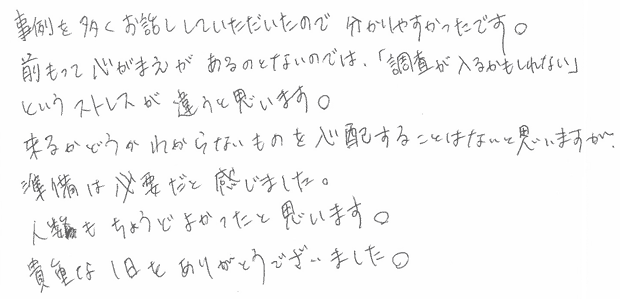 事例を多くお話ししていただいたので分かりやすかったです。
前もって心がまえがあるのとないのでは、「調査が入るかもしれない」
というストレスが違うと思います。
来るかどうかわからないものを心配することはないと思いますが、
準備は必要だと感じました。
人数もちょうどよかったと思います。
貴重な1日をありがとうございました。